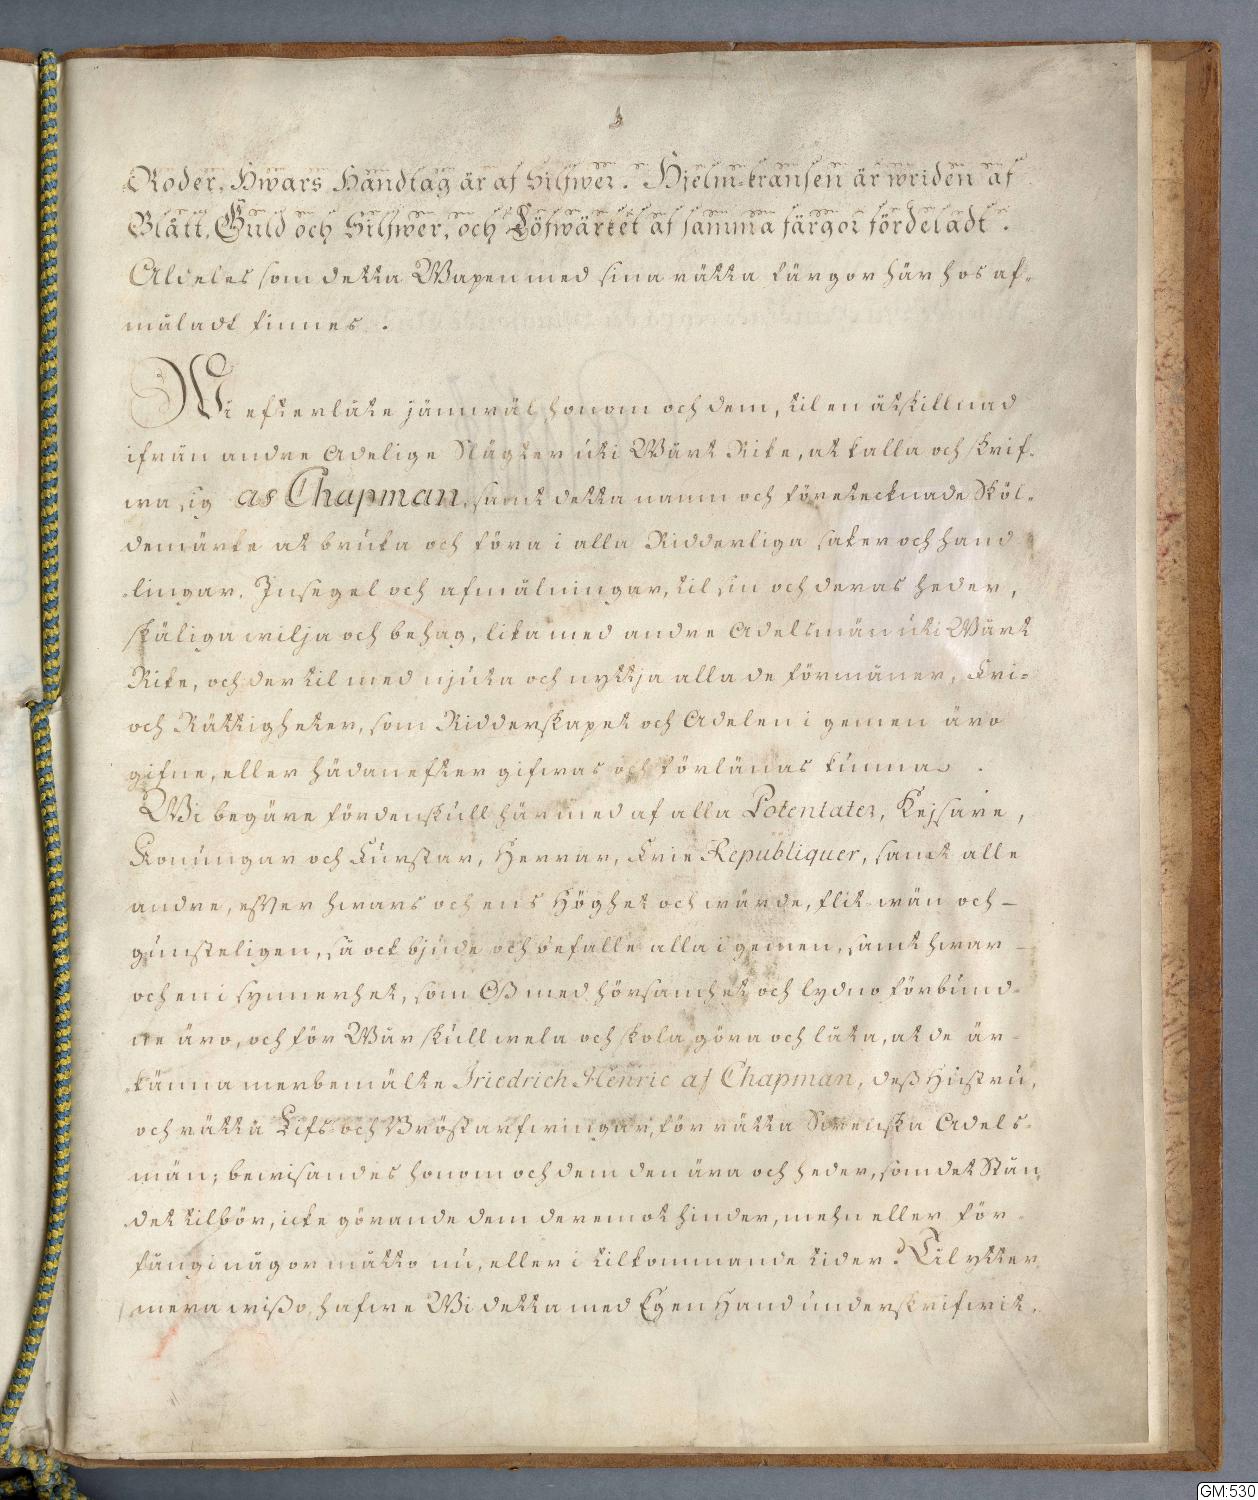 Roder, Hwars Handtag är af Silfwer. Hjelm-kransen är wriden af
Blått, Guld och Silfwer, och Löfwärket af samma färgor fördeladt.
Aldeles som detta Wapen med sina rätta färgor här hos af-
måladt finnes.
Wi efterlåte jämwäl honom och dem, til en åtskillnad
ifrån andre Adelige Slägter uti Wårt Rike, at kalla och skrif-
wa sig af Chapman, samt detta namn och företecknade Sköl-
demärke at bruka och föra i alla Ridderliga saker och hand
lingar, Insegel och afmålningar, til sin och deras heder,
skäliga wilja och behag, lika med andre Adelsmän uti Wårt
Rike, och der til med njuta och nyttja alla de förmåner, Fri-
och Rättigheter, som Ridderskapet och Adelen i gemen äro
gifne, eller hädanefter gifwas och förlänas kunna.
Wi begäre fördenskull härmed af alla Potentater, Kejsare,
Konungar och Furstar, Herrar, Frie Republiquer, samt alle
andre, efter hwars och ens Höghet och wärde, flit-wän och-
gunsteligen, så ock bjude och befalle alla i gemen, samt hwar-
och en i synnerhet, som Oß med hörsamhet och lydno förbund-
ne äro, och för Wår skull wela och skola göra och låta, at de är-
känna merbemälte Friedrich Henric af Chapman, deß Hustru,
och rätta Lifs- och Bröstarfwingar, för rätta Swenska Adels-
män; bewisandes honom och dem den ära och heder, som det Stån-
det tilbör, icke görande dem deremot hinder, mehn eller för-
fång i någor måtto nu, eller i tilkommande tider. Til ytter
mera wißo hafwe Wi detta med Egen Hand underskrifwit,
GM:530